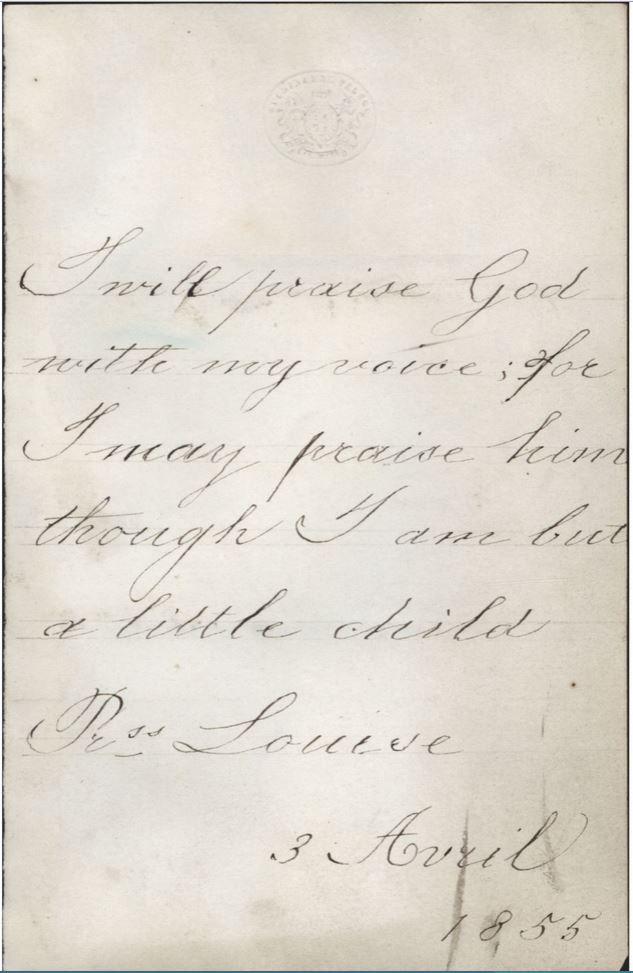 I will praise God
with my voice ; for
I may praise him
though I am but
a little child
Pr.ss Louise
3 Avril
1855